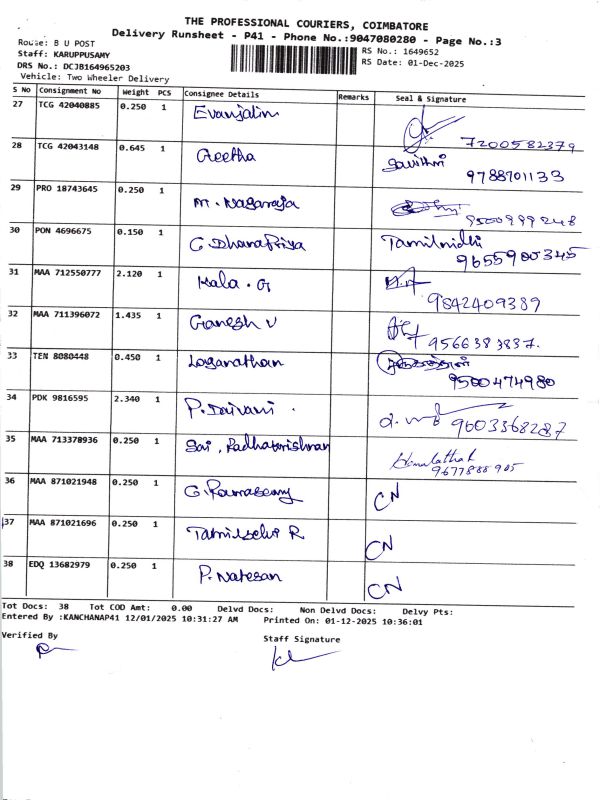 THE PROFESSIONAL COURIERS, COIMBATORE
Delivery Runsheet - P41 - Phone No.:9047080280 - Page No.:3
Route: B U POST
Staff: KARUPPUSAMY
DRS No.: DCJB164965203
Vehicle: Two Wheeler Delivery
RS No.: 1649652
RS Date: 01-Dec-2025
S No Consignment No Weight PCS Consignee Details Remarks Seal & Signature
27 TCG 42040885 0.250 1 Evanjalin 7200582379
28 TCG 42043148 0.645 1 Geetha Savithri 9788701133
29 PRO 18743645 0.250 1 M. Nagaraja 9500999248
30 PON 4696675 0.150 1 G DhanaPriya Tamilnidhi 9655900345
31 MAA 712550777 2.120 1 Kala . G 9842409389
32 MAA 711396072 1.435 1 Ganesh V 9566383837.
33 TEN 8080448 0.450 1 Loganathan 9500474980
34 PDK 9816595 2.340 1 P. 9603368287
35 MAA 713378936 0.250 1 Sai. Radhakrishnan Hemalatha k 9677888905
36 MAA 871021948 0.250 1 G. Ramasamy CN
37 MAA 871021696 0.250 1 Tamilselvi R CN
38 EDQ 13682979 0.250 1 P. Natesan CN
Tot Docs: 38 Tot COD Amt: 0.00 Delvd Docs: Non Delvd Docs: Delvy Pts:
Entered By :KANCHANAP41 12/01/2025 10:31:27 AM Printed On: 01-12-2025 10:36:01
Verified By Staff Signature